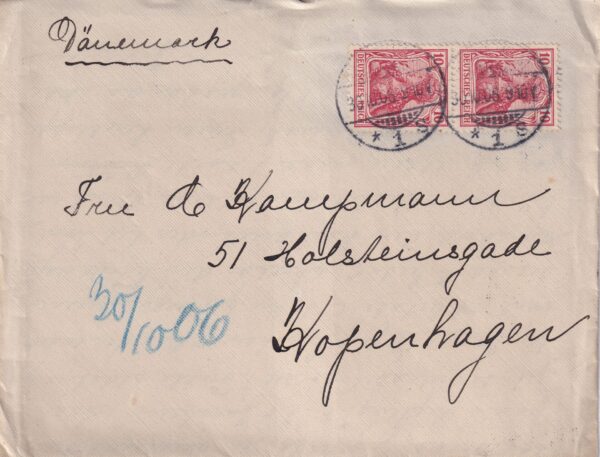 Dänemark
10 DEUTSCHES REICH 10
10 DEUTSCHES REICH 10
* 1 S
* 1 S
Fru Kampmann
51 Holsteinsgade
Kopenhagen
30/10 06